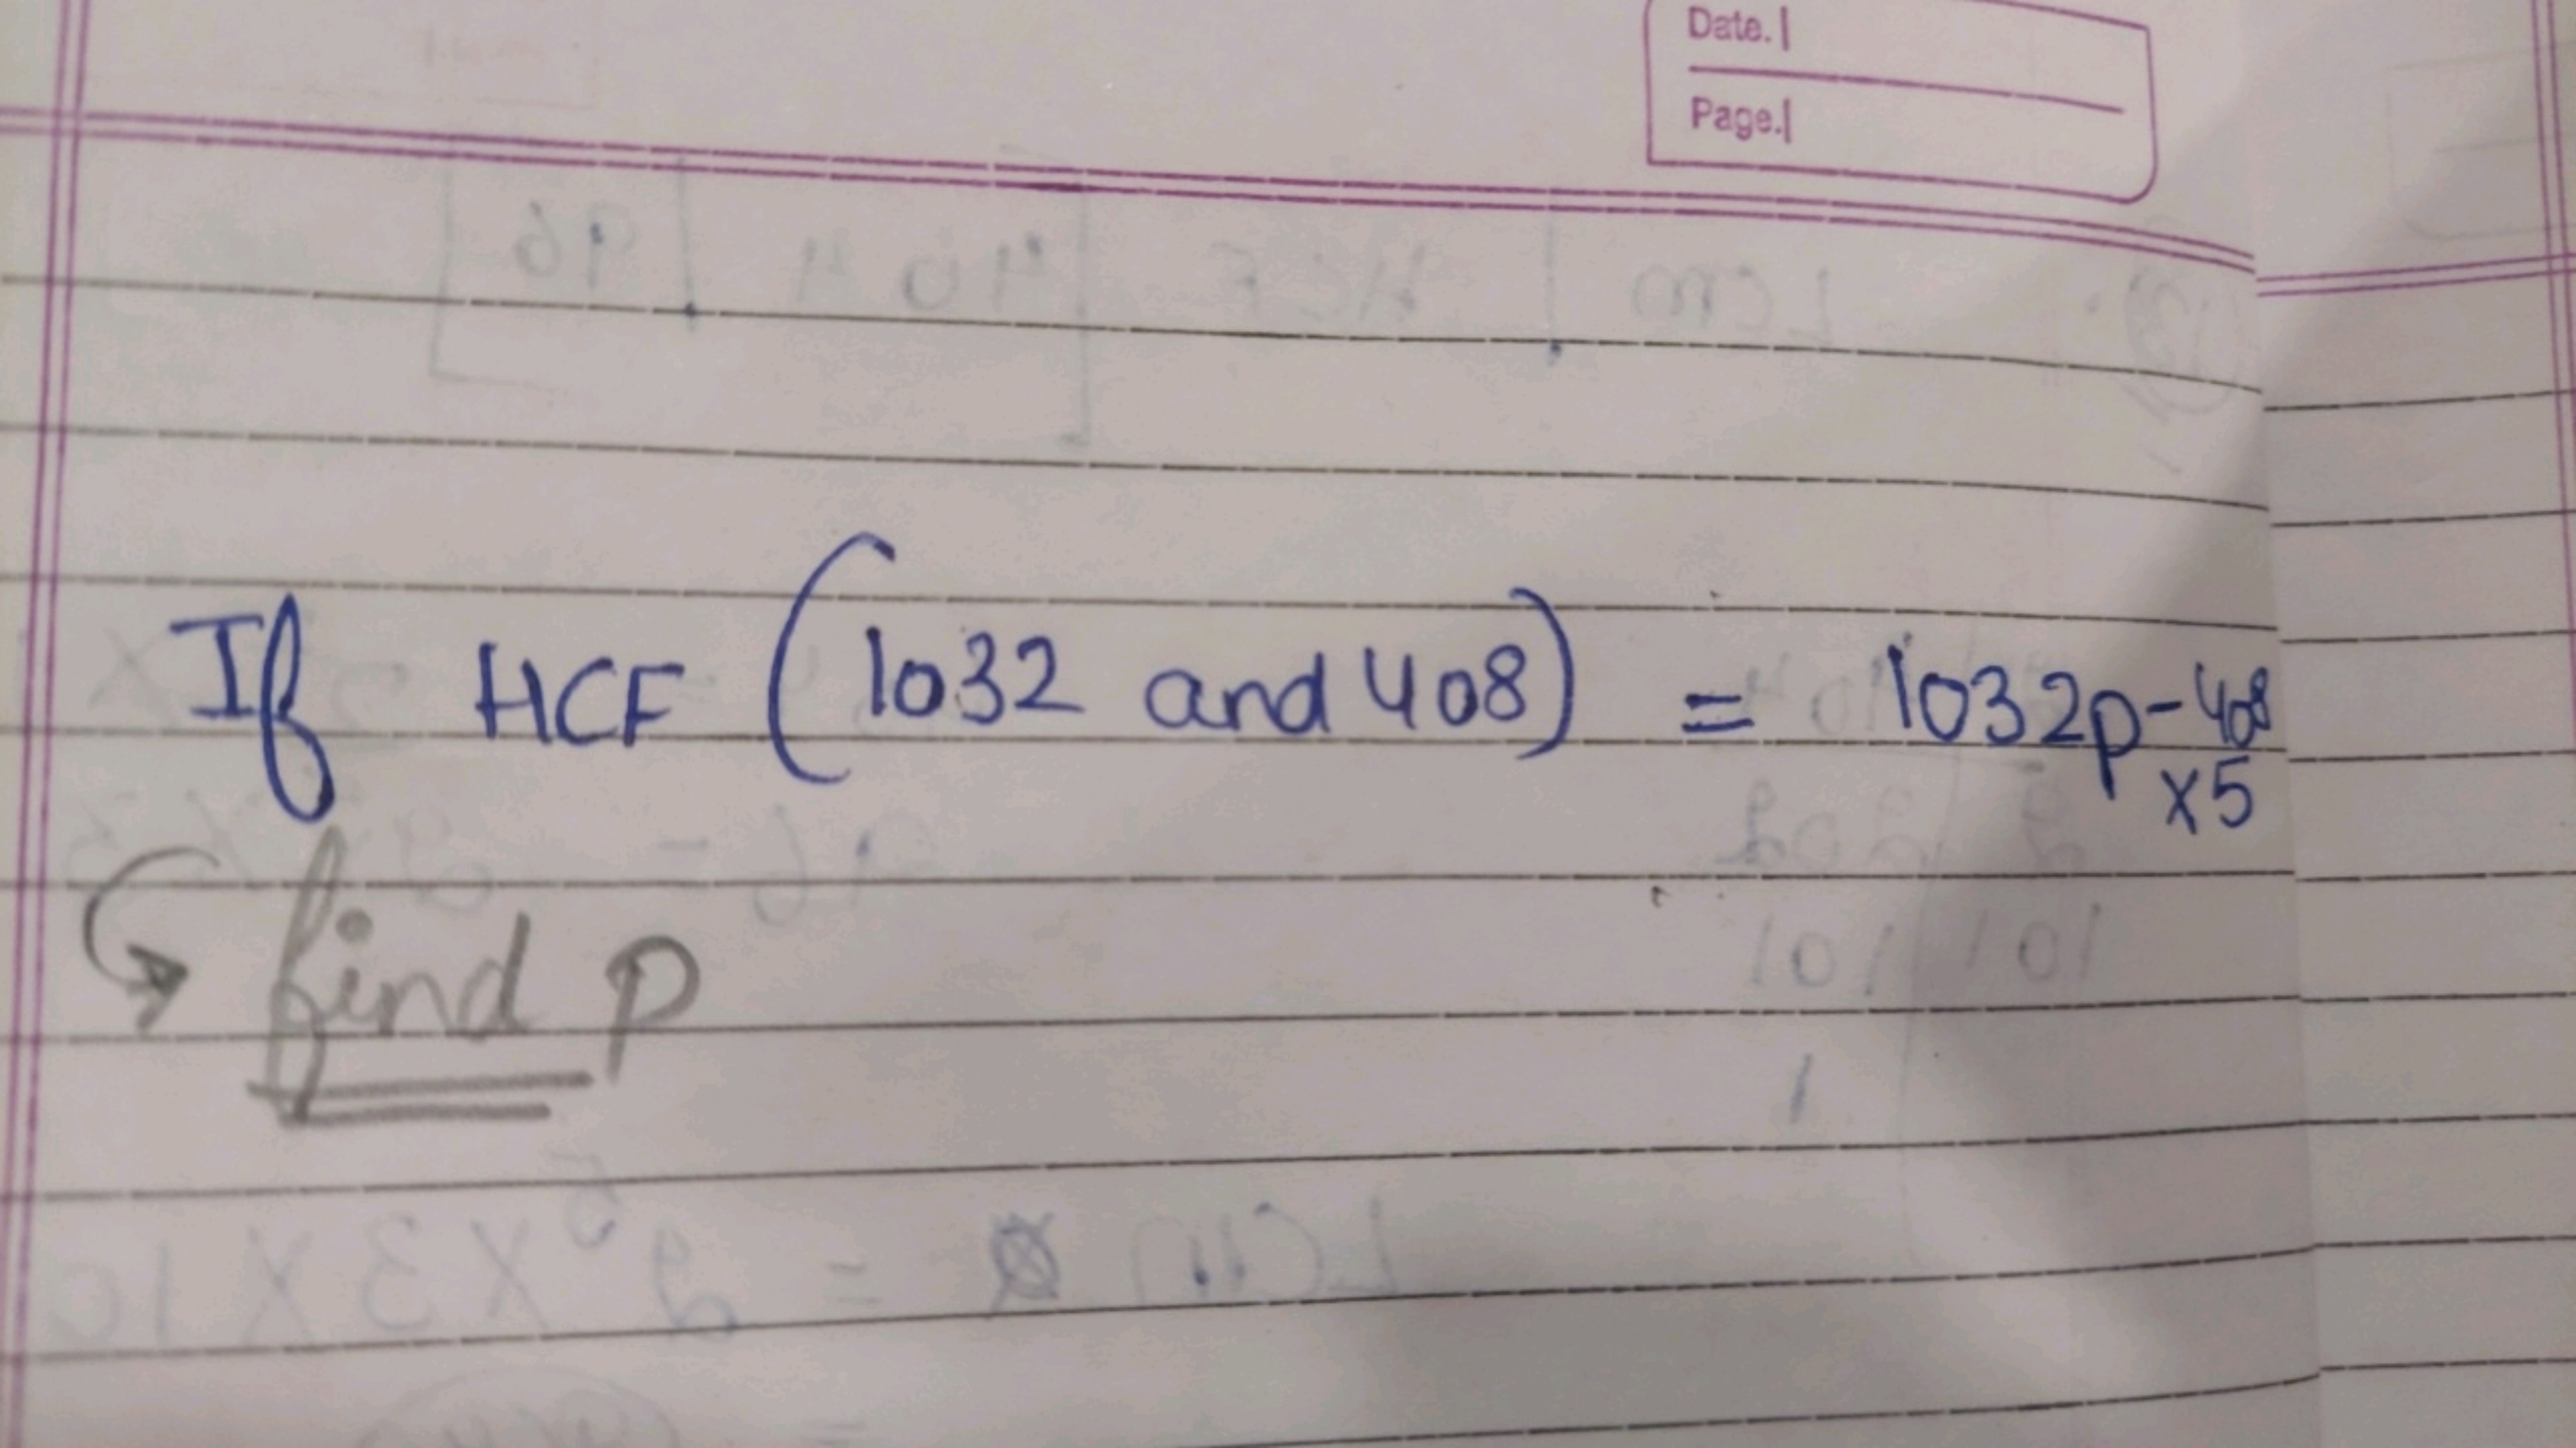 Date.
Page.
If HCF (1032 and 408) = 1032p - 408
x 5
find p